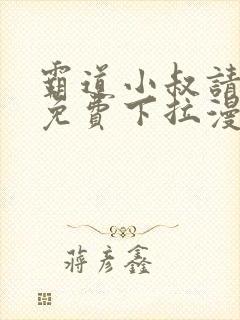 霸道小叔請
免費下拉漫
蔣彥鑫